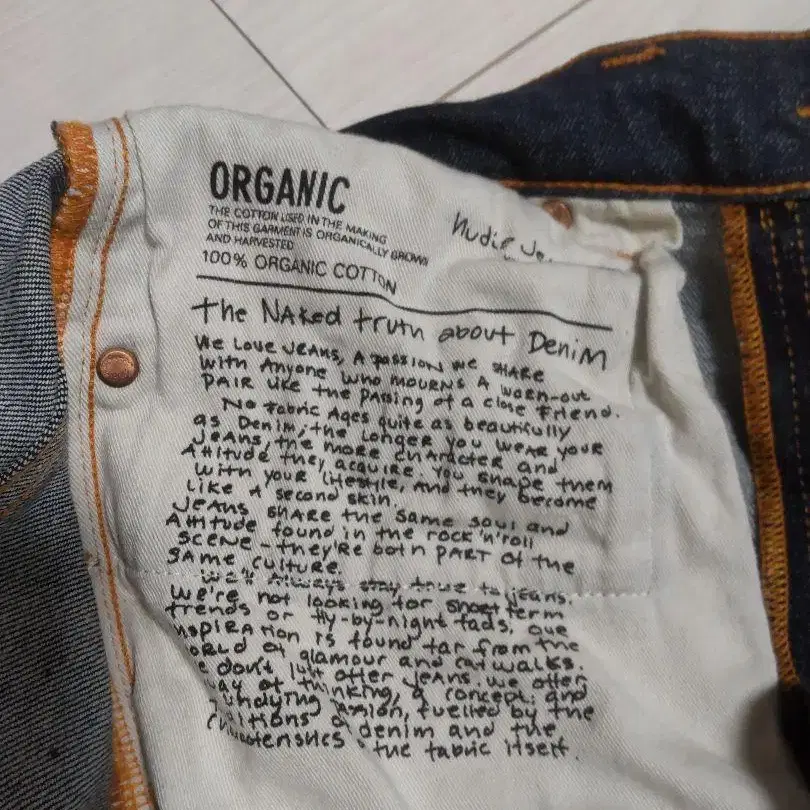 ORGANIC
THE COTTON USED IN THE MAKING
OF THIS GARMENT IS ORGANICALLY GROWN
AND HARVESTED
100% ORGANIC COTTON
Nudie Je
the NAKed truth about DeniM
We Love JEANS, A passion we SHARE
with Anyone who mourns A worn-out
PAIR like the passing of a close Friend.
No fabric Ages quite as beautifully
as Denim; the longer you wear your
Jeans, the more character and
Attitude they acquire. You shape them
with your lifestyle, And they become
like A second skin.
Jeans share the same soul and
Attitude found in the rock'n'roll
scene - they're both PART of the
SAME culture.
We'll Always stay true to jeans.
We're not looking for short term
trends or fly-by-night fads, our
inspiration is found far from the
world of glamour and catwalks.
we don't just offer Jeans. We offer
way of thinking, a concept and
undying passion, fuelled by the
traditions of denim and the
characteristics the fabric itself.